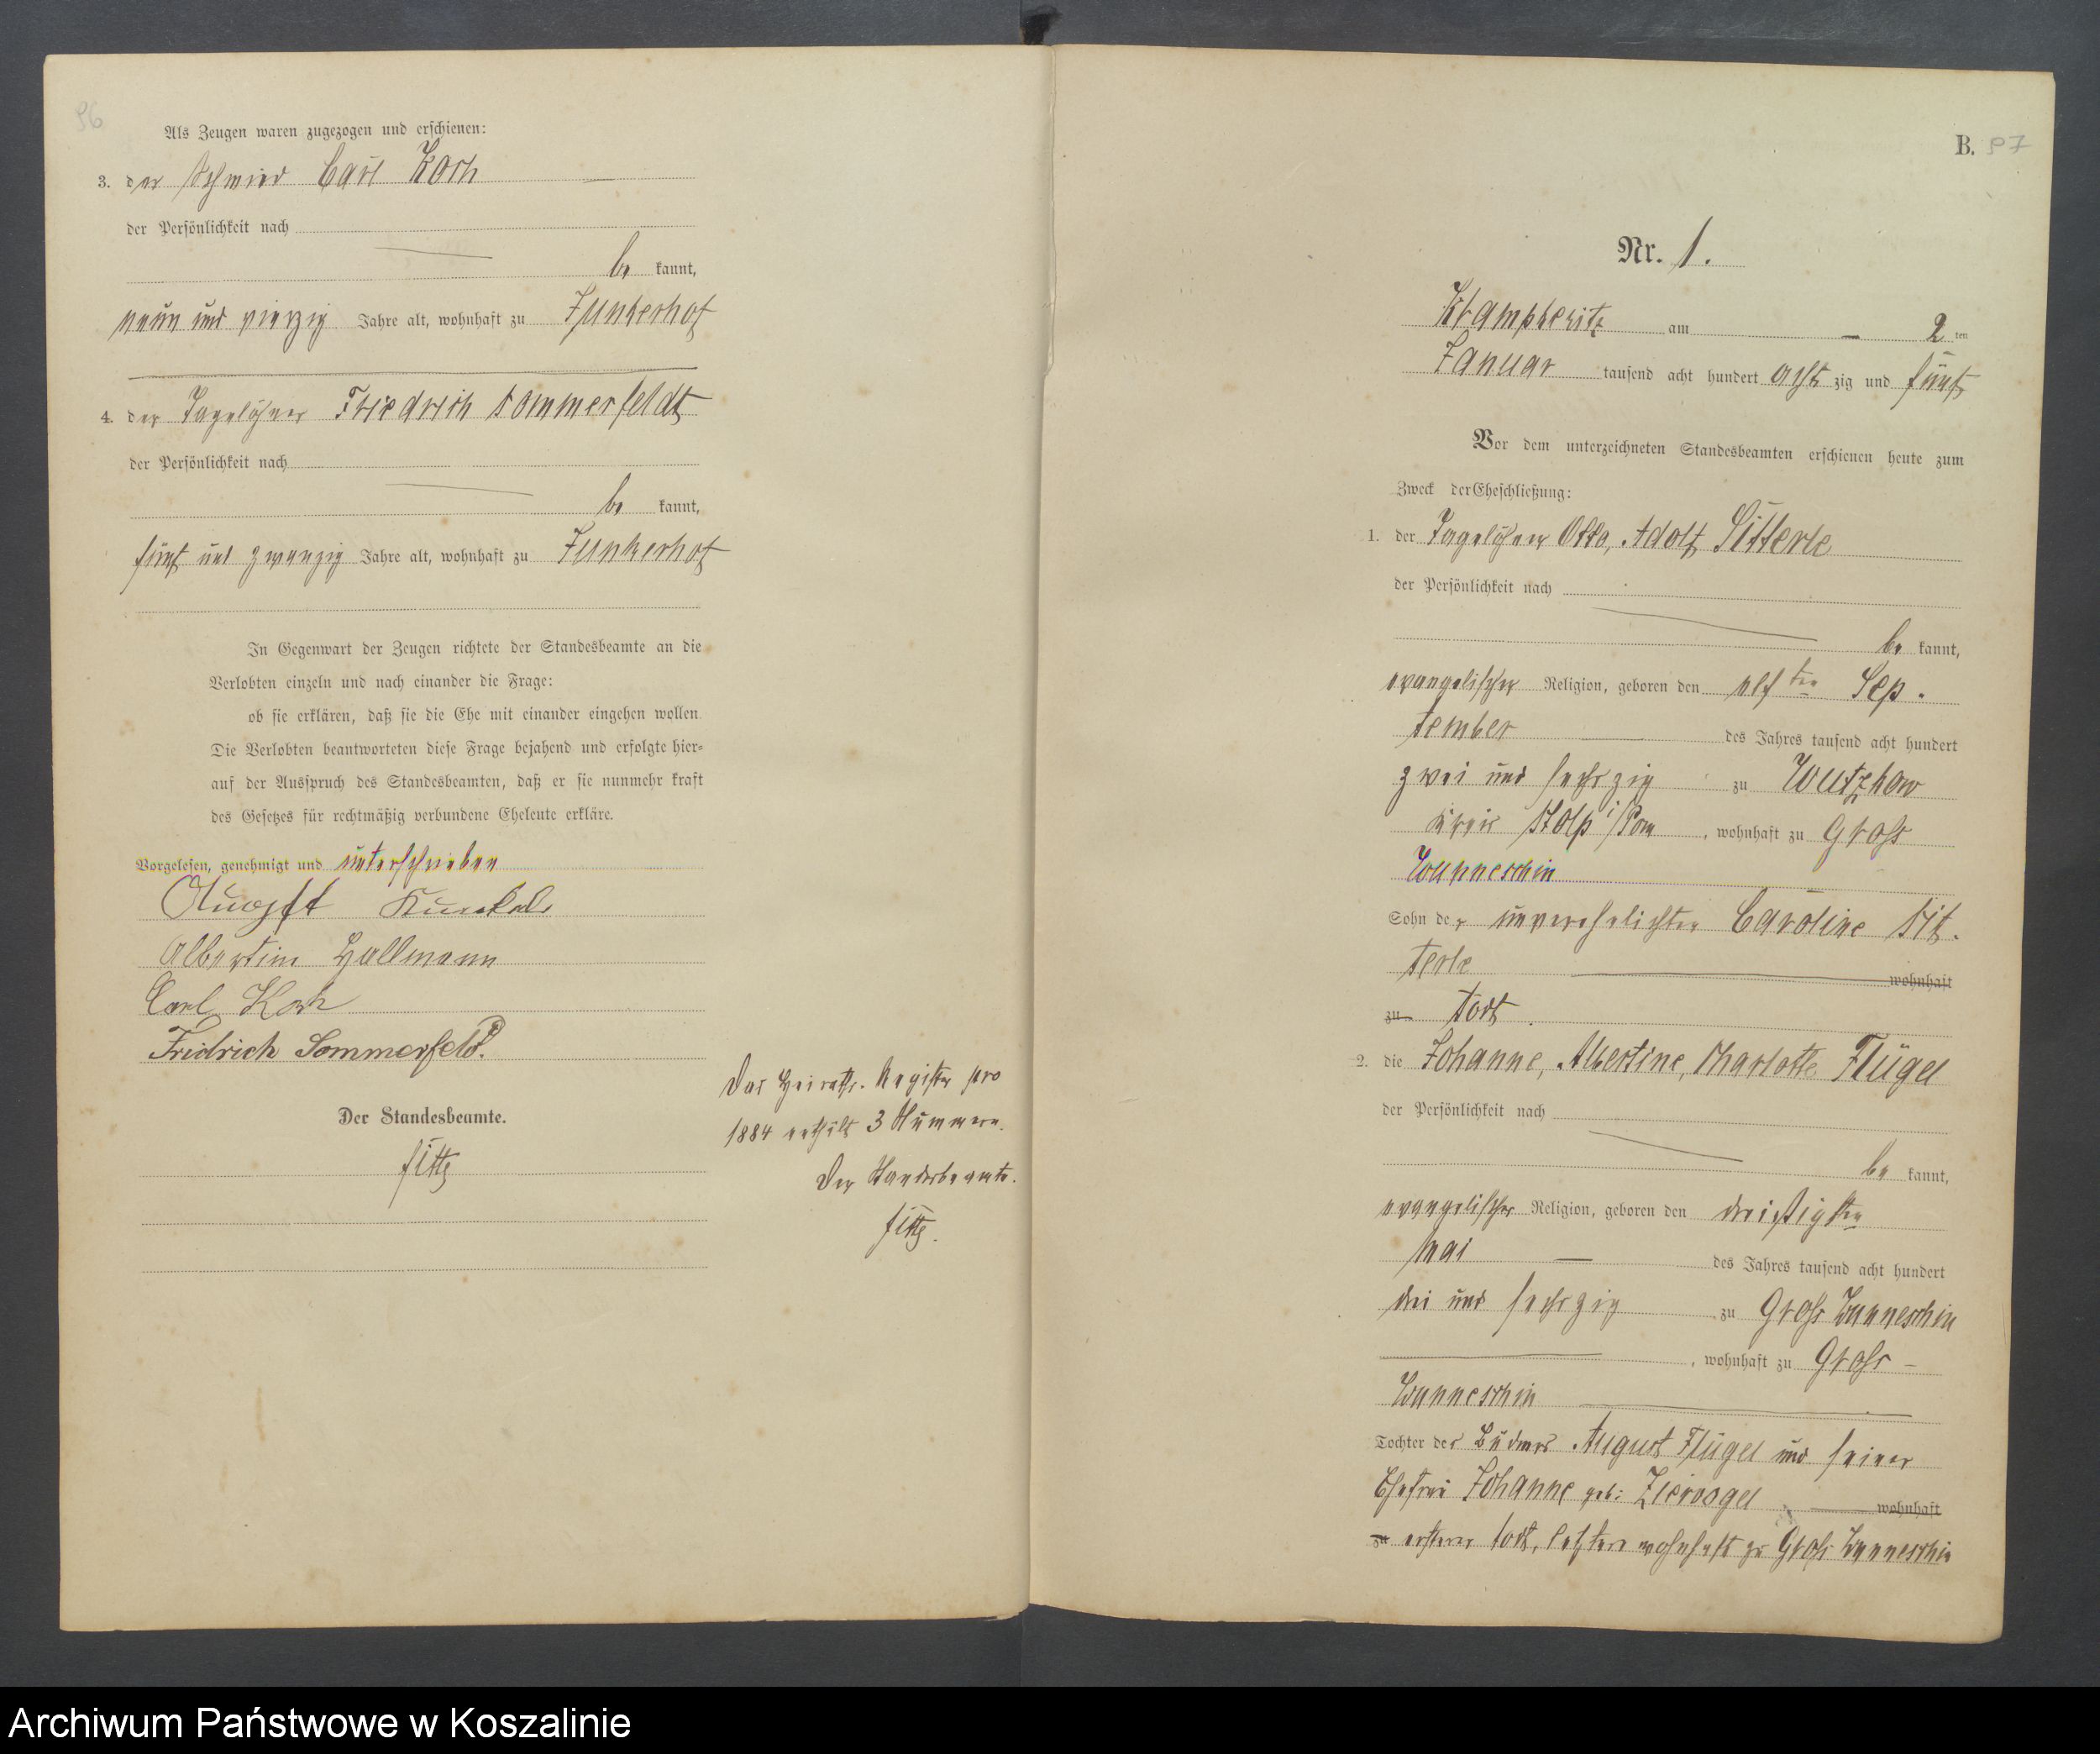 96
Als Zeugen waren zugezogen und erschienen:
3. der Schmied Carl Koch
der Persönlichkeit nach
be kannt,
neun und vierzig Jahre alt, wohnhaft zu Junkerhof
4. der Tagelöhner Friedrich Sommerfeldt
der Persönlichkeit nach
be kannt,
fünf und zwanzig Jahre alt, wohnhaft zu Junkerhof
In Gegenwart der Zeugen richtete der Standesbeamte an die
Verlobten einzeln und nach einander die Frage:
ob sie erklären, daß sie die Ehe mit einander eingehen wollen.
Die Verlobten beantworteten diese Frage bejahend und erfolgte hier=
auf der Ausspruch des Standesbeamten, daß er sie nunmehr kraft
des Gesetzes für rechtmäßig verbundene Eheleute erkläre.
Vorgelesen, genehmigt und unterschrieben
August Kunkel
Albertine Hallmann
Carl Koch
Fridrich Sommerfeld.
Der Standesbeamte.
Das Heiraths-Register pro
1884 enthält 3 Nummern.
Der Standesbeamte.
B. 97
Nr. 1.
Klampkeritz am 2 ten
Januar tausend acht hundert acht zig und fünf
Vor dem unterzeichneten Standesbeamten erschienen heute zum
Zweck der Eheschließung:
1. der Tagelöhner Otto, Adolf Sitterle
der Persönlichkeit nach
be kannt,
evangelischer Religion, geboren den elften Sep.
tember des Jahres tausend acht hundert
zwei und sechszig zu Wutzkow
Kreis Stolp i/Pom, wohnhaft zu Gross
Wunneschin
Sohn der unverehelichten Caroline Sit.
terle wohnhaft
zu todt.
2. die Johanne, Albertine, Charlotte Flügel
der Persönlichkeit nach
be kannt,
evangelischer Religion, geboren den dreißigsten
Mai des Jahres tausend acht hundert
drei und sechszig zu Gross Wunneschin
, wohnhaft zu Gross-
Wunneschin
Tochter des Büdners August Flügel und seiner
Ehefrau Johanne geb: Ziervogel wohnhaft
zu ersterer todt, letztere wohnhaft zu Gross Wunneschin
Archiwum Państwowe w Koszalinie